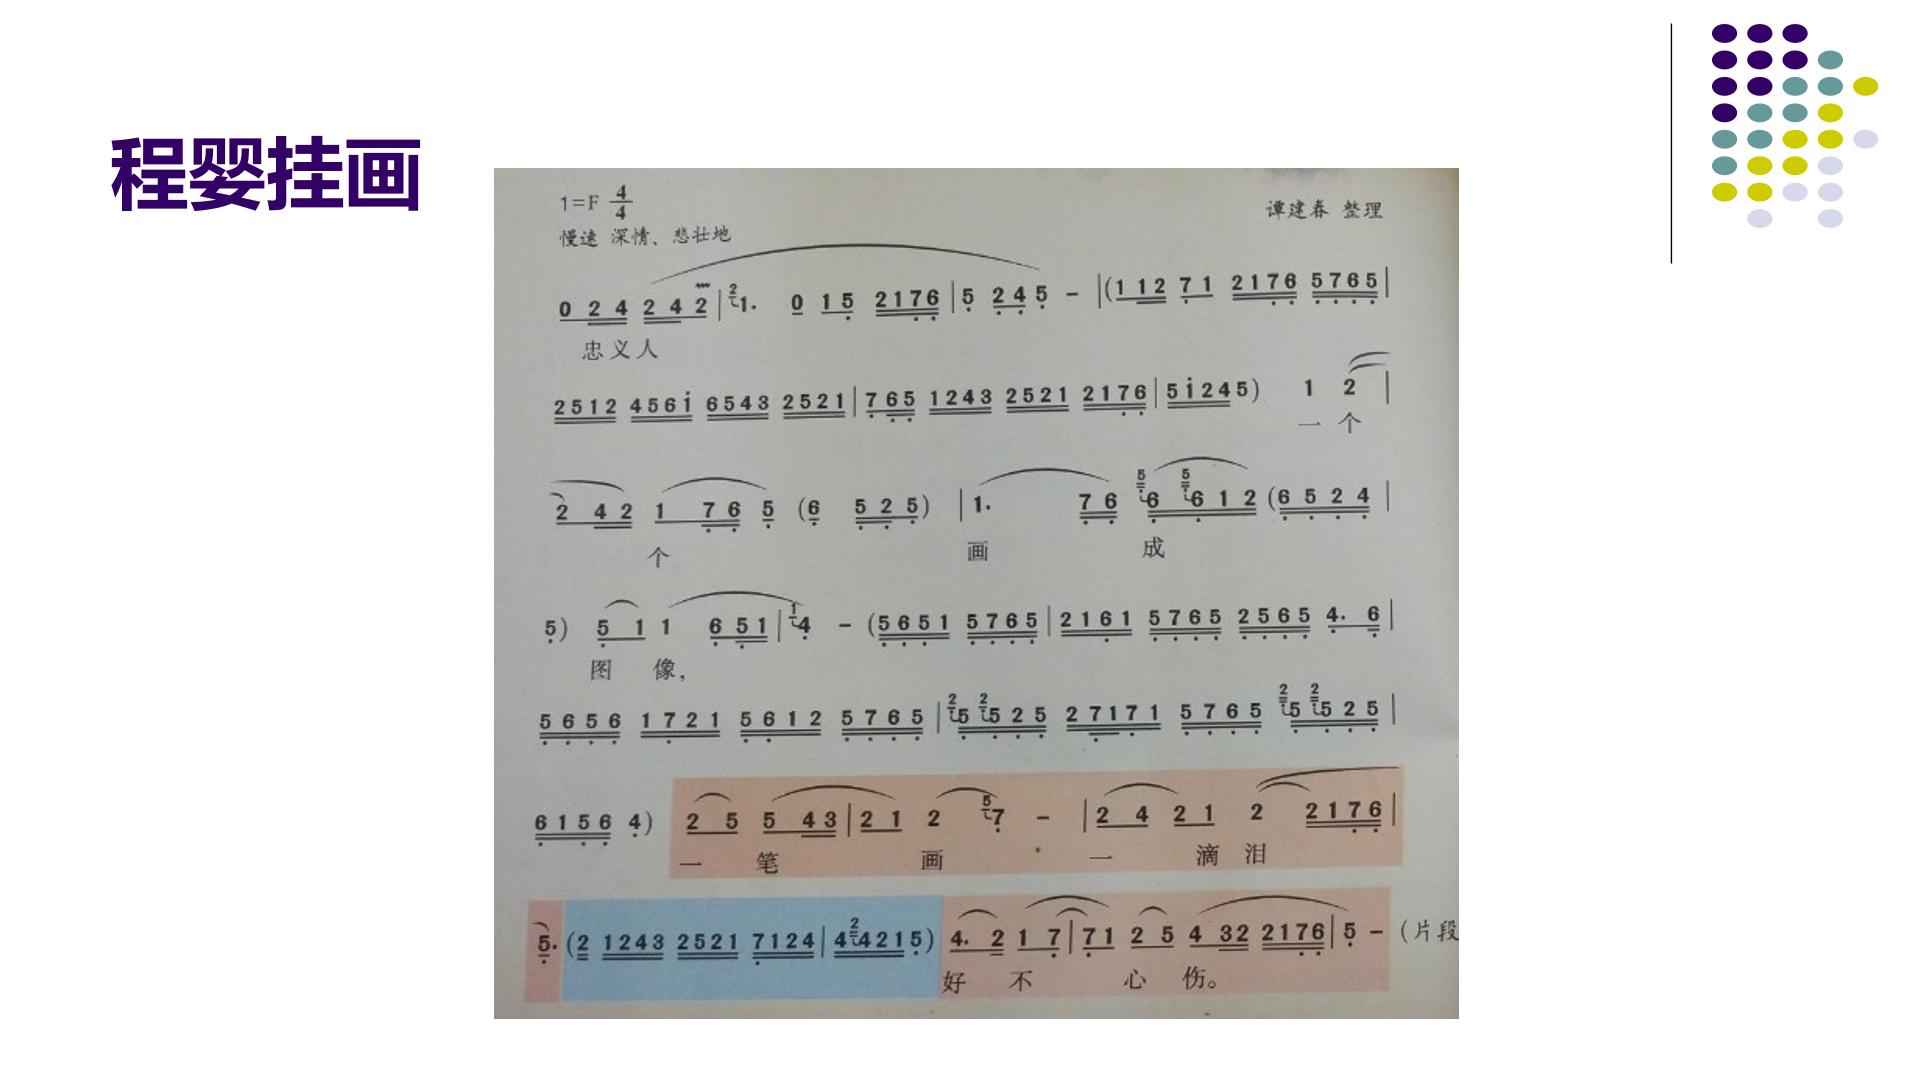 程婴挂画
1=F 4/4
谭建春 整理
慢速 深情、悲壮地
0 2 4 2 4 2 | 2 1. 0 1 5 2 1 7 6 | 5 2 4 5 - | (1 1 2 7 1 2 1 7 6 5 7 6 5 |
忠 义 人
2 5 1 2 4 5 6 i 6 5 4 3 2 5 2 1 | 7 6 5 1 2 4 3 2 5 2 1 2 1 7 6 | 5 i 2 4 5) 1 2 |
一 个
2 4 2 1 7 6 5 (6 5 2 5) | 1. 7 6 5 6 5 6 1 2 (6 5 2 4 |
个 画 成
5) 5 1 1 6 5 1 | 1 4 - (5 6 5 1 5 7 6 5 | 2 1 6 1 5 7 6 5 2 5 6 5 4. 6 |
图 像,
5 6 5 6 1 7 2 1 5 6 1 2 5 7 6 5 | 2 5 2 5 2 5 2 7 1 7 1 5 7 6 5 2 5 2 5 2 5 |
6 1 5 6 4) 2 5 5 4 3 | 2 1 2 5 7 - | 2 4 2 1 2 2 1 7 6 |
一 笔 画 一 滴 泪
5. (2 1 2 4 3 2 5 2 1 7 1 2 4 | 4 2 4 2 1 5) 4. 2 1 7 | 7 1 2 5 4 3 2 2 1 7 6 | 5 - (片段
好 不 心 伤。